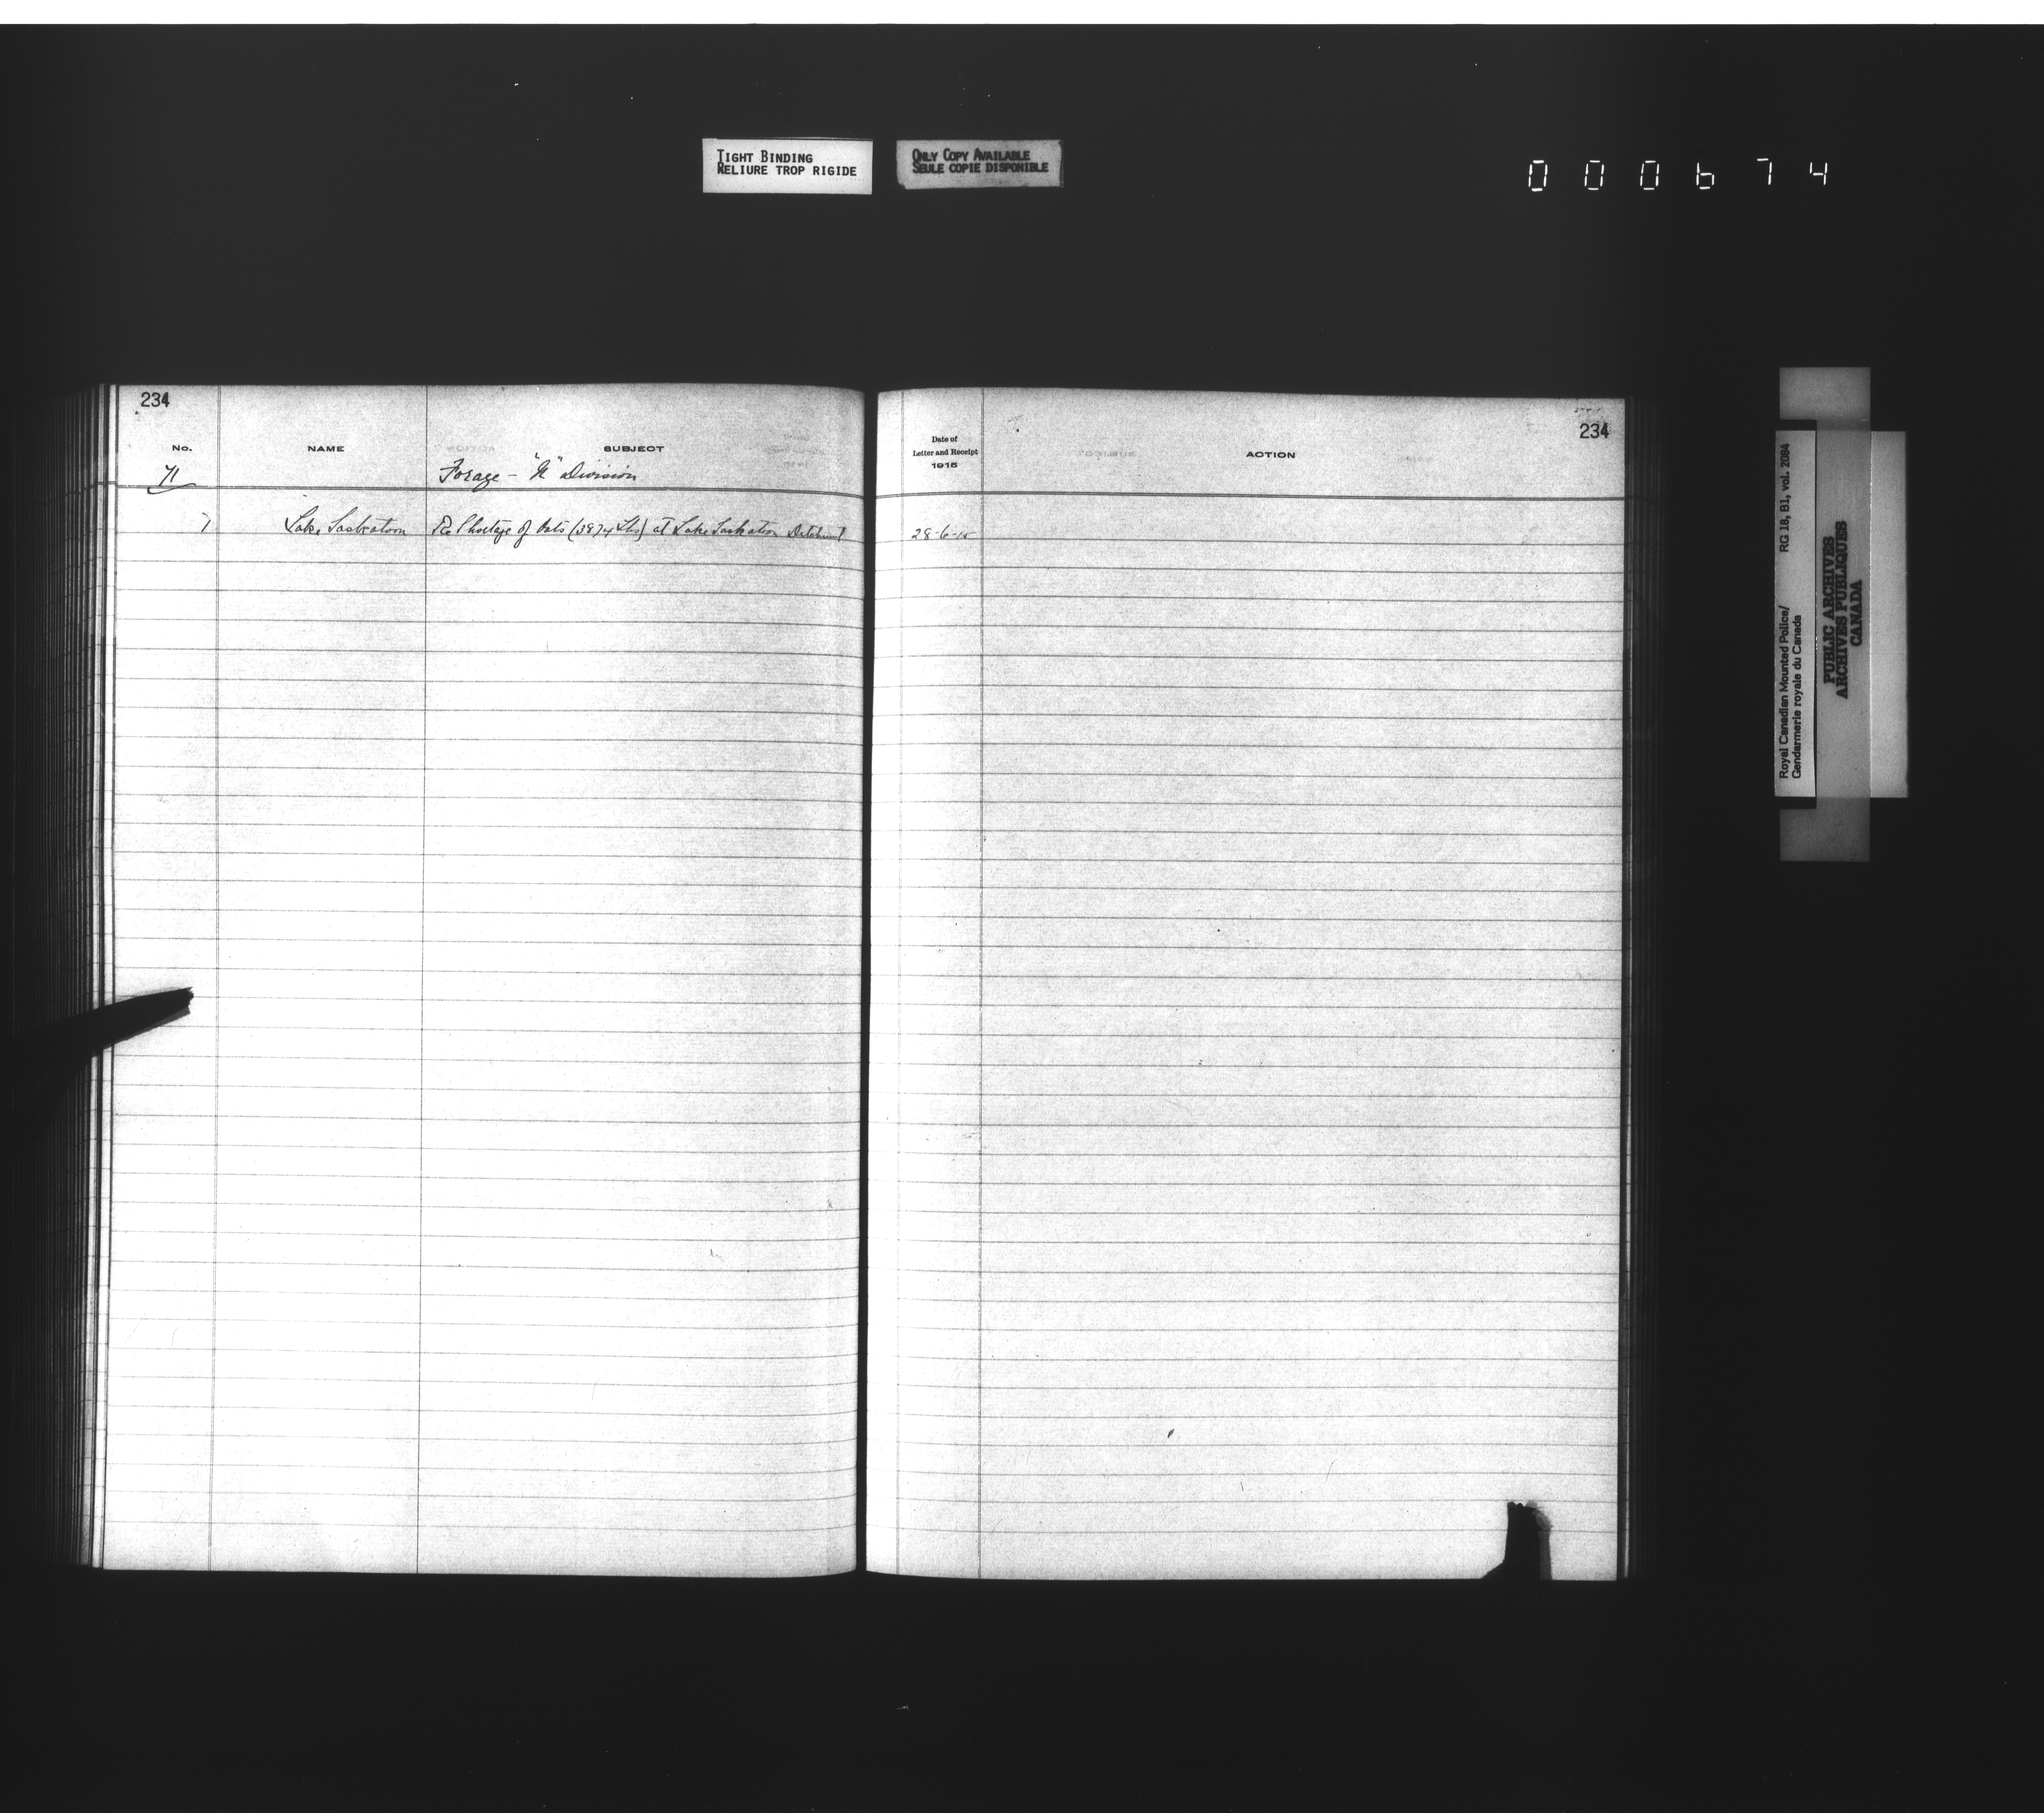 TIGHT BINDING
RELIURE TROP RIGIDE
ONLY COPY AVAILABLE
SEULE COPIE DISPONIBLE
000674
234
No.
NAME
SUBJECT
71
Forage - "N" Division
7
Lake Saskatoon
Re Shortage of Oats (3874 Lbs) at Lake Saskatoon Detachment
234
Date of
Letter and Receipt
1915
ACTION
28-6-15
Royal Canadian Mounted Police/ RG 18, B1, vol. 2084
Gendarmerie royale du Canada
PUBLIC ARCHIVES
ARCHIVES PUBLIQUES
CANADA